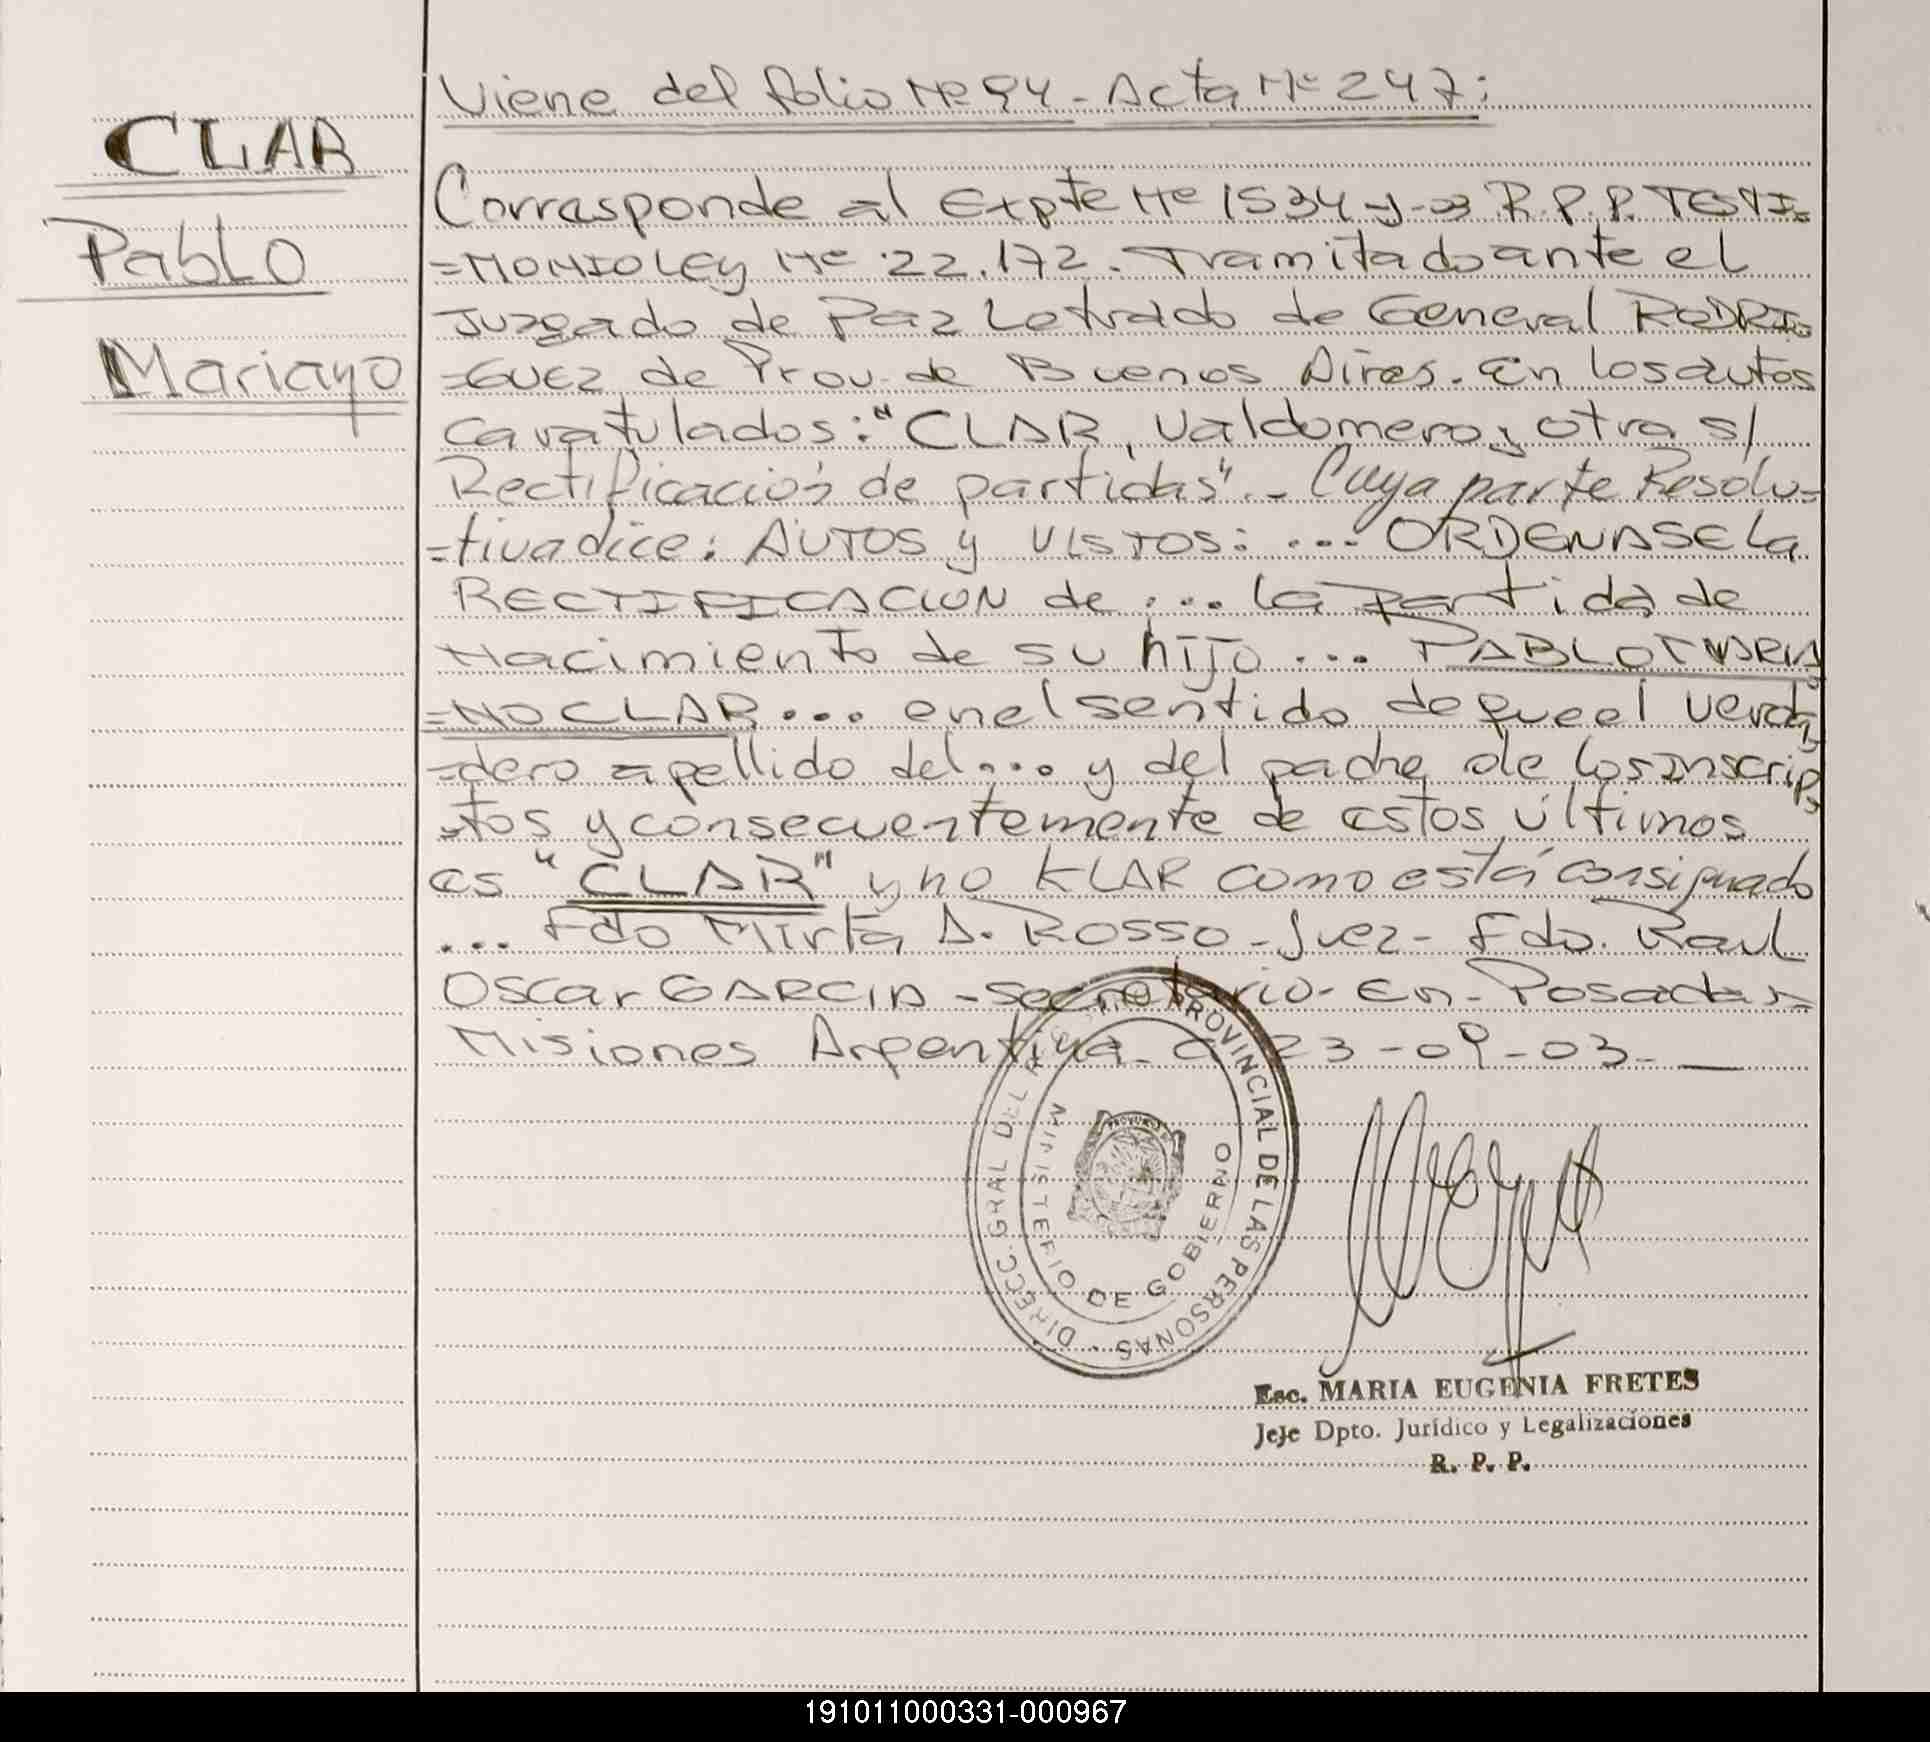 CLAR
Pablo
Mariano
Viene del folio Nº 94 - Acta Nº 247:
Corresponde al Expte Nº 1534-y-03 R.P.P. TESTI=
=MONIO LEY Nº 22.172. Tramitado ante el
Juzgado de Paz Letrado de General RODRI=
=GUEZ de Prov. de Buenos Aires. En los autos
caratulados: "CLAR, Valdomero y otra s/
Rectificación de partidas".- Cuya parte Resolu=
=tiva dice: AUTOS y VISTOS: ... ORDENASE la
RECTIFICACION de ... la partida de
Nacimiento de su hijo ... PABLO MARIA
=NO CLAR ... en el sentido de que el verda
=dero apellido del ... y del padre de los inscrip
=tos y consecuentemente de estos últimos
es "CLAR" y no KLAR como está consignado
... Fdo Mirta A. ROSSO - Juez - Fdo. Raul
Oscar GARCIA - Secretario - En - Posadas
Misiones Argentina - a 23-09-03-
DIRECC. GRAL DEL REGISTRO PROVINCIAL DE LAS PERSONAS
MINISTERIO DE GOBIERNO
Esc. MARIA EUGENIA FRETES
Jefe Dpto. Jurídico y Legalizaciones
R. P. P.
191011000331-000967